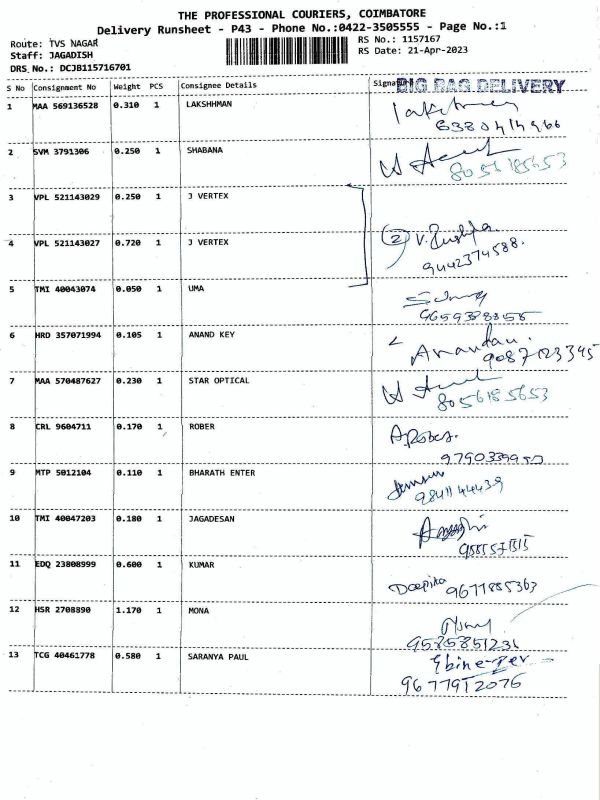 THE PROFESSIONAL COURIERS, COIMBATORE
Delivery Runsheet - P43 - Phone No.:0422-3505555 - Page No.:1
Route: TVS NAGAR
RS No.: 1157167
Staff: JAGADISH
RS Date: 21-Apr-2023
DRS No.: DCJB115716701
S No Consignment No Weight PCS Consignee Details Signature
BIG BAG DELIVERY
1 MAA 569136528 0.310 1 LAKSHHMAN
2 SVM 3791306 0.250 1 SHABANA
8056185653
3 VPL 521143029 0.250 1 J VERTEX
4 VPL 521143027 0.720 1 J VERTEX
2 V.
9442374588.
5 TMI 40043074 0.050 1 UMA
6 HRD 357071994 0.105 1 ANAND KEY
Anandan.
9087123345
7 MAA 570487627 0.230 1 STAR OPTICAL
8056185653
8 CRL 9604711 0.170 1 ROBER
A.Rober.
9 MTP 5012104 0.110 1 BHARATH ENTER
9841144439
10 TMI 40047203 0.180 1 JAGADESAN
11 EDQ 23808999 0.600 1 KUMAR
Deepika 9677885363
12 HSR 2708890 1.170 1 MONA
9585851231
13 TCG 40461778 0.580 1 SARANYA PAUL
Ebinezer
9677912076